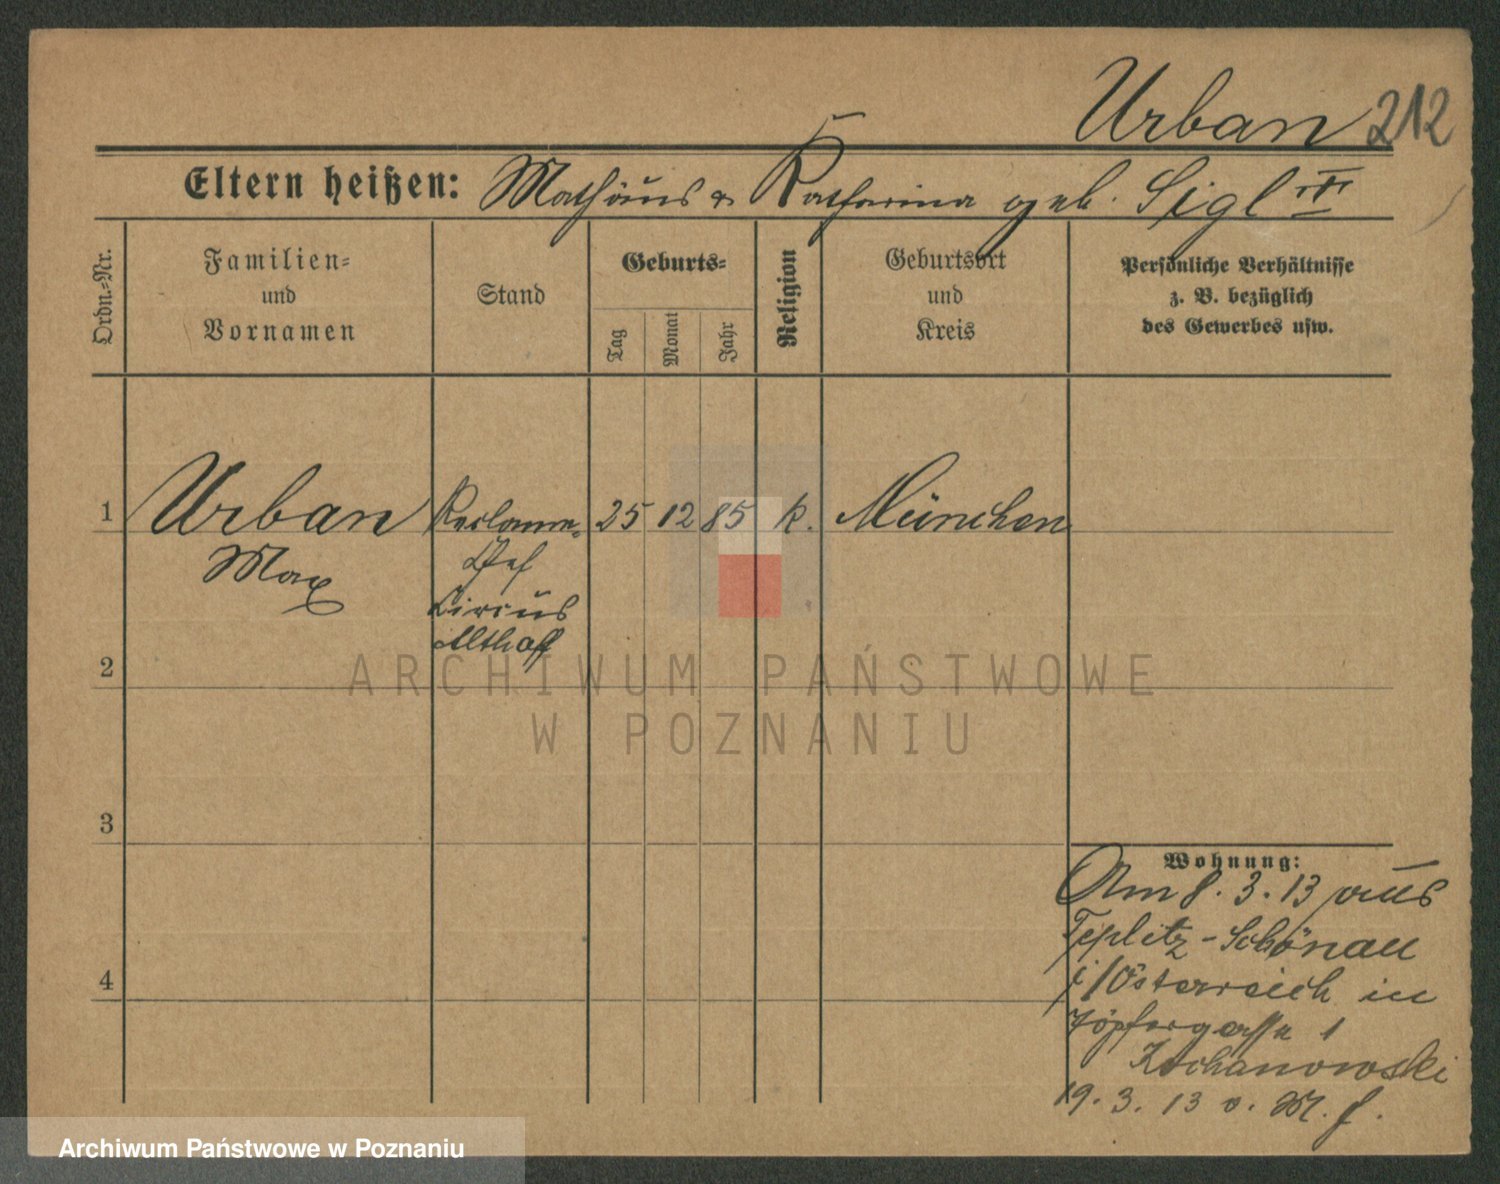 Urban 212
Eltern heißen: Mathäus & Katharina geb. Sigl
Ordn.=Nr.
Familien=
und
Vornamen
Stand
Geburts=
Tag
Monat
Jahr
Religion
Geburtsort
und
Kreis
Persönliche Verhältnisse
z. B. bezüglich
des Gewerbes usw.
1 Urban Reclame= 25 12 85 k. München
Max Chef
Circus
Althoff
2
3
4
Wohnung:
Am 8. 3. 13 aus
Teplitz-Schönau
i/Österreich in
Töpfergasse 1
Kochanowski
19. 3. 13 v. M. f.
ARCHIWUM PAŃSTWOWE
W POZNANIU
Archiwum Państwowe w Poznaniu